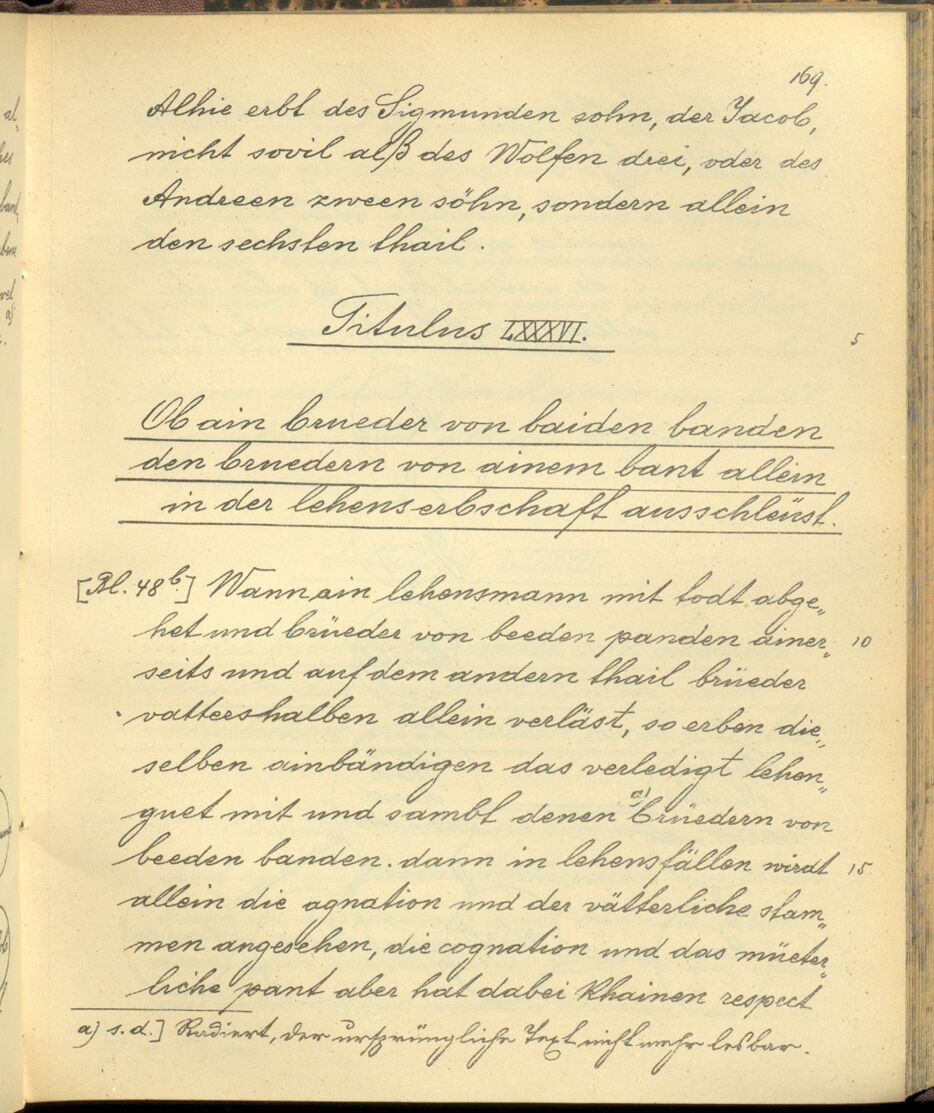 169.
Alhie erbt des Sigmunden sohn, der Jacob,
nicht sovil alß des Wolfen drei, oder des
Andreen zween söhn, sondern allein
den sechsten thail.
Titulus LXXXVI.
5
Ob ain brueder von baiden banden
den bruedern von ainem bant allein
in der lehenserbschaft ausschleüst.
[Bl. 48b.] Wann ain lehensmann mit todt abge„
het und brüeder von beeden panden ainer„ 10
seits und auf dem andern thail brüeder
vattershalben allein verläst, so erben die„
selben ainbändigen das verledigt lehen„
guet mit und sambt denen a) brüedern von
beeden banden. dann in lehensfällen wirdt 15
allein die agnation und der vätterliche stam„
men angesehen, die cognation und das müeter„
liche pant aber hat dabei khainen respect
a) s. d.] Radiert, der ursprüngliche Text nicht mehr lesbar.